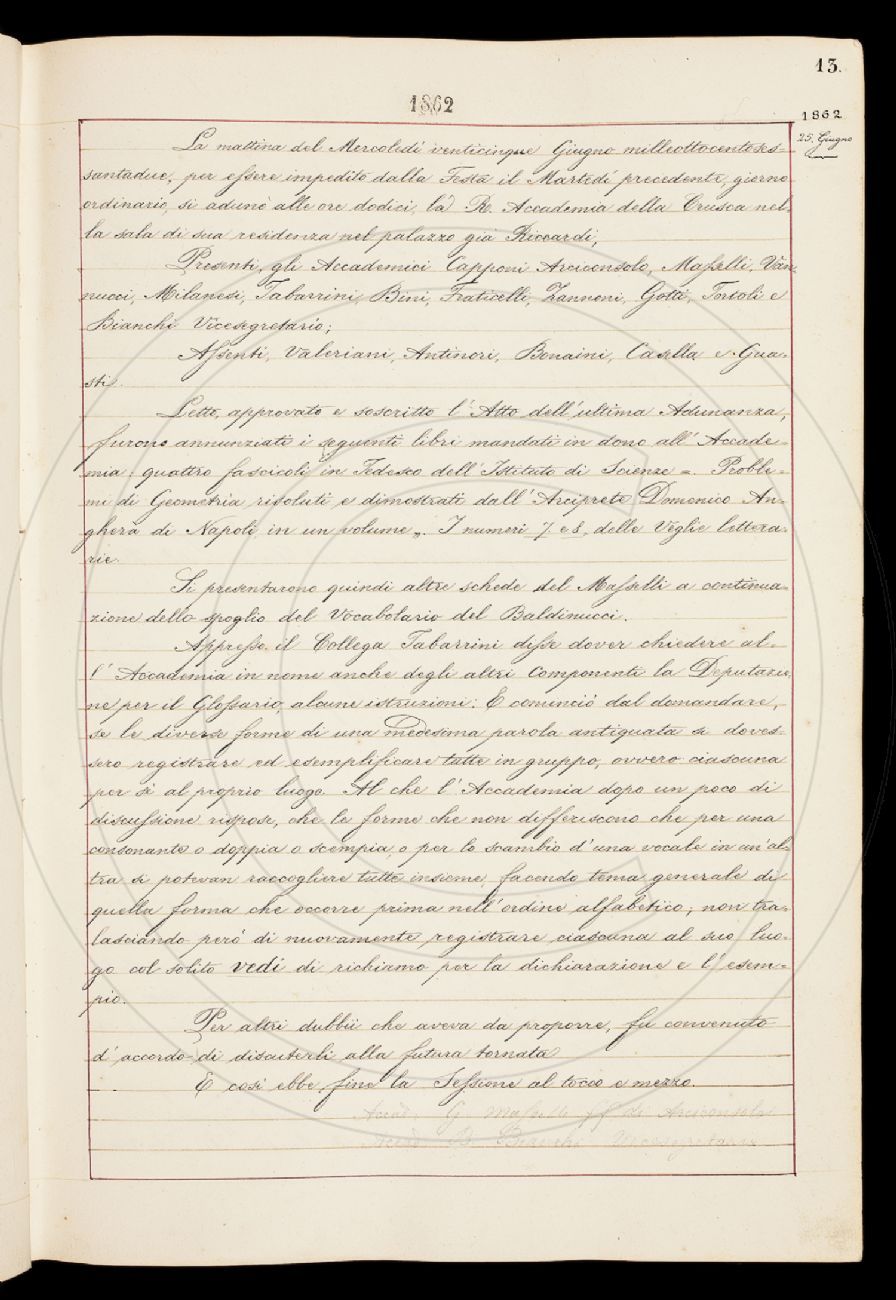 13.
1862
1862
25. Giugno
La mattina del Mercoledí venticinque Giugno milleottocentoses-
santadue, per essere impedito dalla Festa il Martedí precedente, giorno
ordinario, si adunò alle ore dodici, la R. Accademia della Crusca nel-
la sala di sua residenza nel palazzo già Riccardi,
Presenti, gli Accademici Capponi Arciconsolo, Masselli, Van-
nucci, Milanesi, Tabarrini, Bini, Fraticelli, Zannoni, Gotti, Tortoli e
Bianchi Vicesegretario;
Assenti, Valeriani, Antinori, Bonaini, Casella e Gua-
sti.
Letto, approvato e soscritto l'Atto dell'ultima Adunanza,
furono annunziati i seguenti libri mandati in dono all'Accade-
mia: quattro fascicoli in Tedesco dell'Istituto di Scienze =. Proble-
mi di Geometria risoluti e dimostrati dall'Arciprete Domenico An-
gherà di Napoli, in un volume „. I numeri 7. e 8, delle Veglie lettera-
rie.
Si presentarono quindi altre schede del Masselli a continua-
zione dello spoglio del Vocabolario del Baldinucci.
Appresso il Collega Tabarrini disse dover chiedere al-
l'Accademia in nome anche degli altri componenti la Deputazio-
ne per il Glossario, alcune istruzioni: E cominciò dal domandare,
se le diverse forme di una medesima parola antiquata si doves-
sero registrare ed esemplificare tutte in gruppo, ovvero ciascuna
per sè al proprio luogo. Al che l'Accademia dopo un poco di
discussione rispose, che le forme che non differiscono che per una
consonante o doppia o scempia, o per lo scambio d'una vocale in un'al-
tra si potevan raccogliere tutte insieme, facendo tema generale di
quella forma che occorre prima nell'ordine alfabetico; non tra-
lasciando però di nuovamente registrare ciascuna al suo luo-
go col solito vedi di richiamo per la dichiarazione e l'esem-
pio.
Per altri dubbii che aveva da proporre, fu convenuto
d'accordo di discuterli alla futura tornata
E così ebbe fine la Sessione al tocco e mezzo.
Accad. G. Masselli ff. di Arciconsolo
Accad. B. Bianchi Vicesegretario